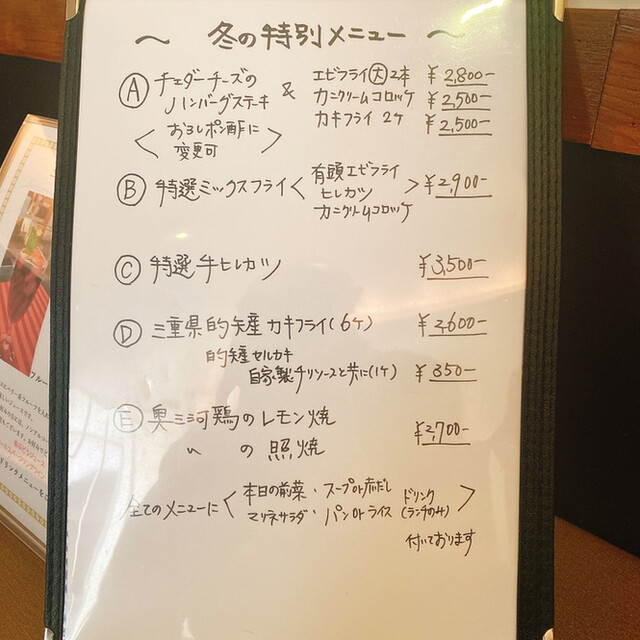 〜 冬の特別メニュー 〜
Ⓐ チェダーチーズの ハンバーグステーキ & エビフライ(大)2本 ¥2,800-
カニクリームコロッケ ¥2,500-
カキフライ 2ケ ¥2,500-
< おろしポン酢に 変更可 >
Ⓑ 特選ミックスフライ < 有頭エビフライ
ヒレカツ
カニクリームコロッケ > ¥2,900-
Ⓒ 特選牛ヒレカツ ¥3,500-
Ⓓ 三重県的矢産 カキフライ(6ケ) ¥2,600-
的矢産セルカキ
自家製チリソースと共に(1ケ) ¥350-
Ⓔ 奥三河鶏のレモン焼
〃 の 照焼 ¥2,700-
全てのメニューに < 本日の前菜・スープor赤だし
マリネサラダ・パンorライス ドリンク
(ランチのみ) >
付いております